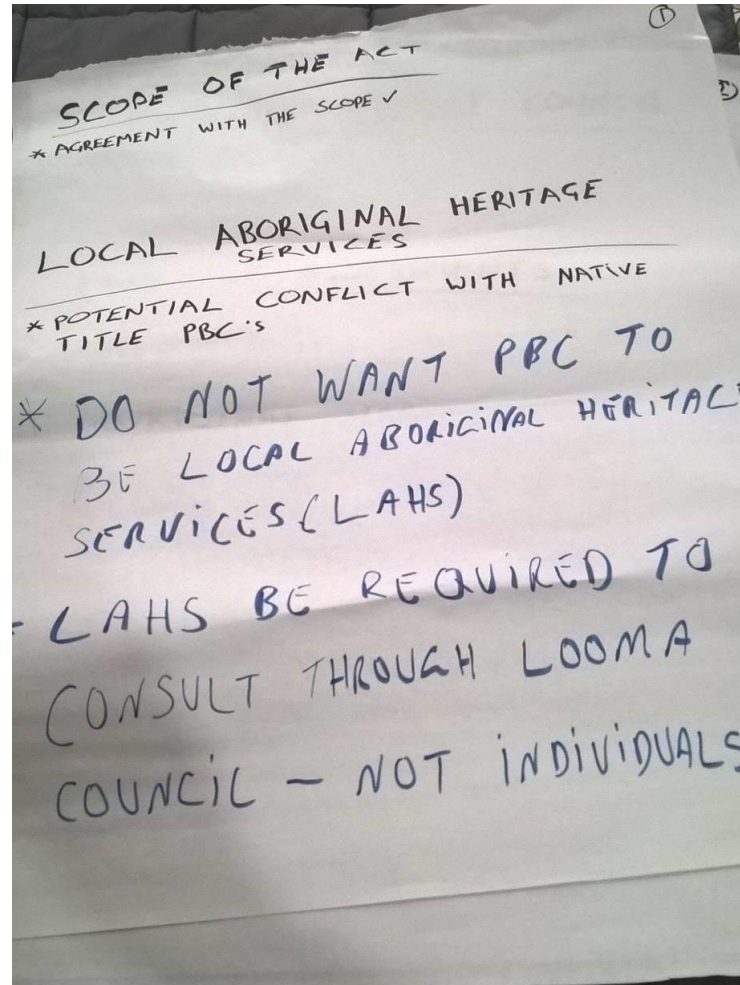 ①
SCOPE OF THE ACT
* AGREEMENT WITH THE SCOPE ✓
LOCAL ABORIGINAL HERITAGE
SERVICES
* POTENTIAL CONFLICT WITH NATIVE
TITLE PBC's
* DO NOT WANT PBC TO
BE LOCAL ABORIGINAL HERITAGE
SERVICES (LAHS)
- LAHS BE REQUIRED TO
CONSULT THROUGH LOOMA
COUNCIL - NOT INDIVIDUALS